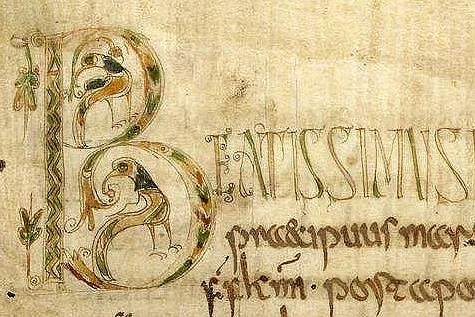 BEATISSIMUS
praecipuus mar
post apo